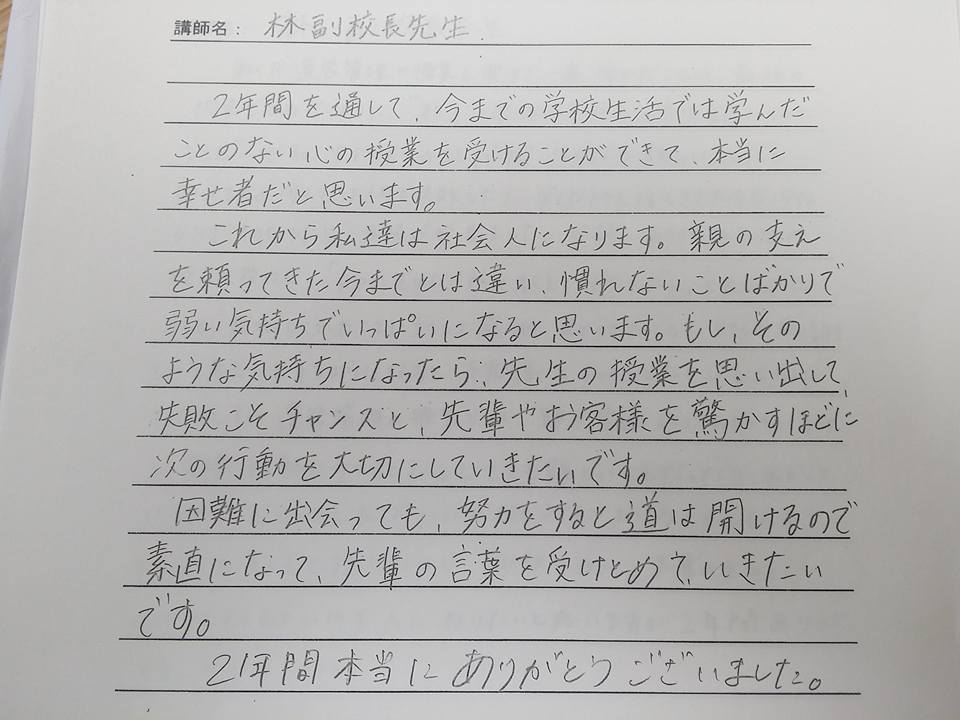 講師名: 林副校長先生
2年間を通して、今までの学校生活では学んだ
ことのない心の授業を受けることができて、本当に
幸せ者だと思います。
これから私達は社会人になります。親の支え
を頼ってきた今までとは違い、慣れないことばかりで
弱い気持ちでいっぱいになると思います。もし、その
ような気持ちになったら、先生の授業を思い出して、
失敗こそチャンスと、先輩やお客様を驚かすほどに
次の行動を大切にしていきたいです。
困難に出会っても、努力をすると道は開けるので
素直になって、先輩の言葉を受けとめていきたい
です。
2年間本当にありがとうございました。